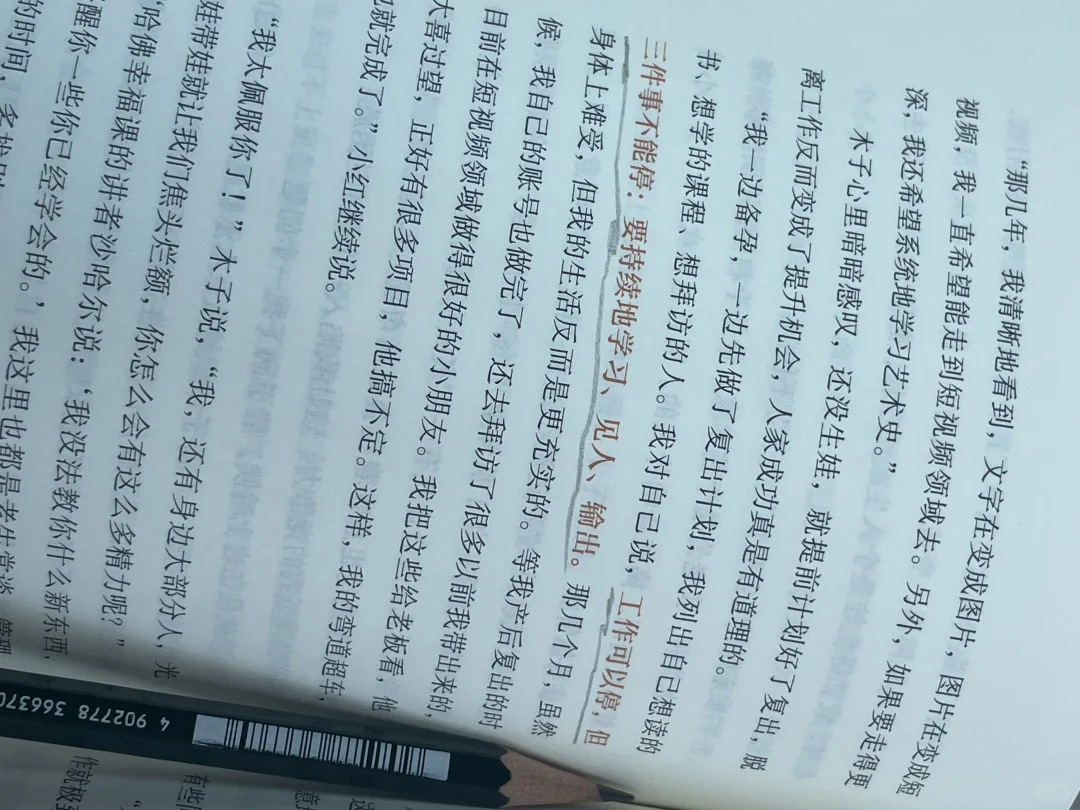 “那几年，我清晰地看到，文字在变成图片，图片在变成短
视频，我一直希望能走到短视频领域去。另外，如果要走得更
深，我还希望系统地学习艺术史。”
木子心里暗暗感叹，还没生娃，就提前计划好了复出，脱
离工作反而变成了提升机会，人家成功真是有道理的。
“我一边备孕，一边先做了复出计划，我列出自己想读的
书、想学的课程、想拜访的人。我对自己说，工作可以停，但
三件事不能停：要持续地学习、见人、输出。那几个月，虽然
身体上难受，但我的生活反而是更充实的。等我产后复出的时
候，我自己的账号也做完了，还去拜访了很多以前我带出来的，
目前在短视频领域做得很好的小朋友。我把这些给老板看，他
大喜过望，正好有很多项目，他搞不定。这样，我的弯道超车，
也就完成了。”小红继续说。
“我太佩服你了！”木子说，“我，还有身边大部分人，光
娃带娃就让我们焦头烂额，你怎么会有这么多精力呢？”
“哈佛幸福课的讲者沙哈尔说：‘我没法教你什么新东西，
醒你一些你已经学会的。’我这里也都是老生常谈
的时间，多
管理
4 902778 36637
有些
你就